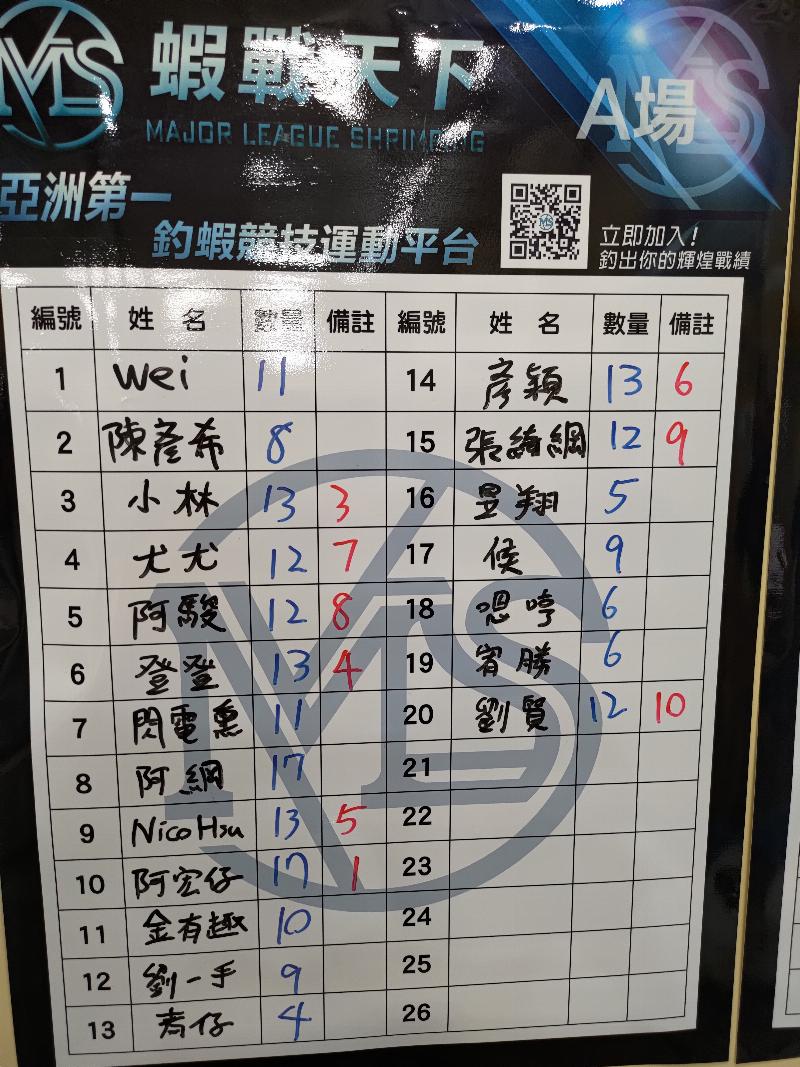 MLS 蝦戰天下
MAJOR LEAGUE SHRIMPING
A場
亞洲第一
釣蝦競技運動平台
立即加入!
釣出你的輝煌戰績
編號 姓名 數量 備註 編號 姓名 數量 備註
1 wei 11 14 彥穎 13 6
2 陳彥希 8 15 張綺網 12 9
3 小林 13 3 16 昱翔 5
4 尤尤 12 7 17 侯 9
5 阿駿 12 8 18 嗯哼 6
6 登登 13 4 19 宥勝 6
7 閃電 11 20 劉賢 12 10
8 阿綱 17 21
9 Nico Hsu 13 5 22
10 阿宏仔 17 1 23
11 金有趣 10 24
12 劉一手 9 25
13 仔 4 26